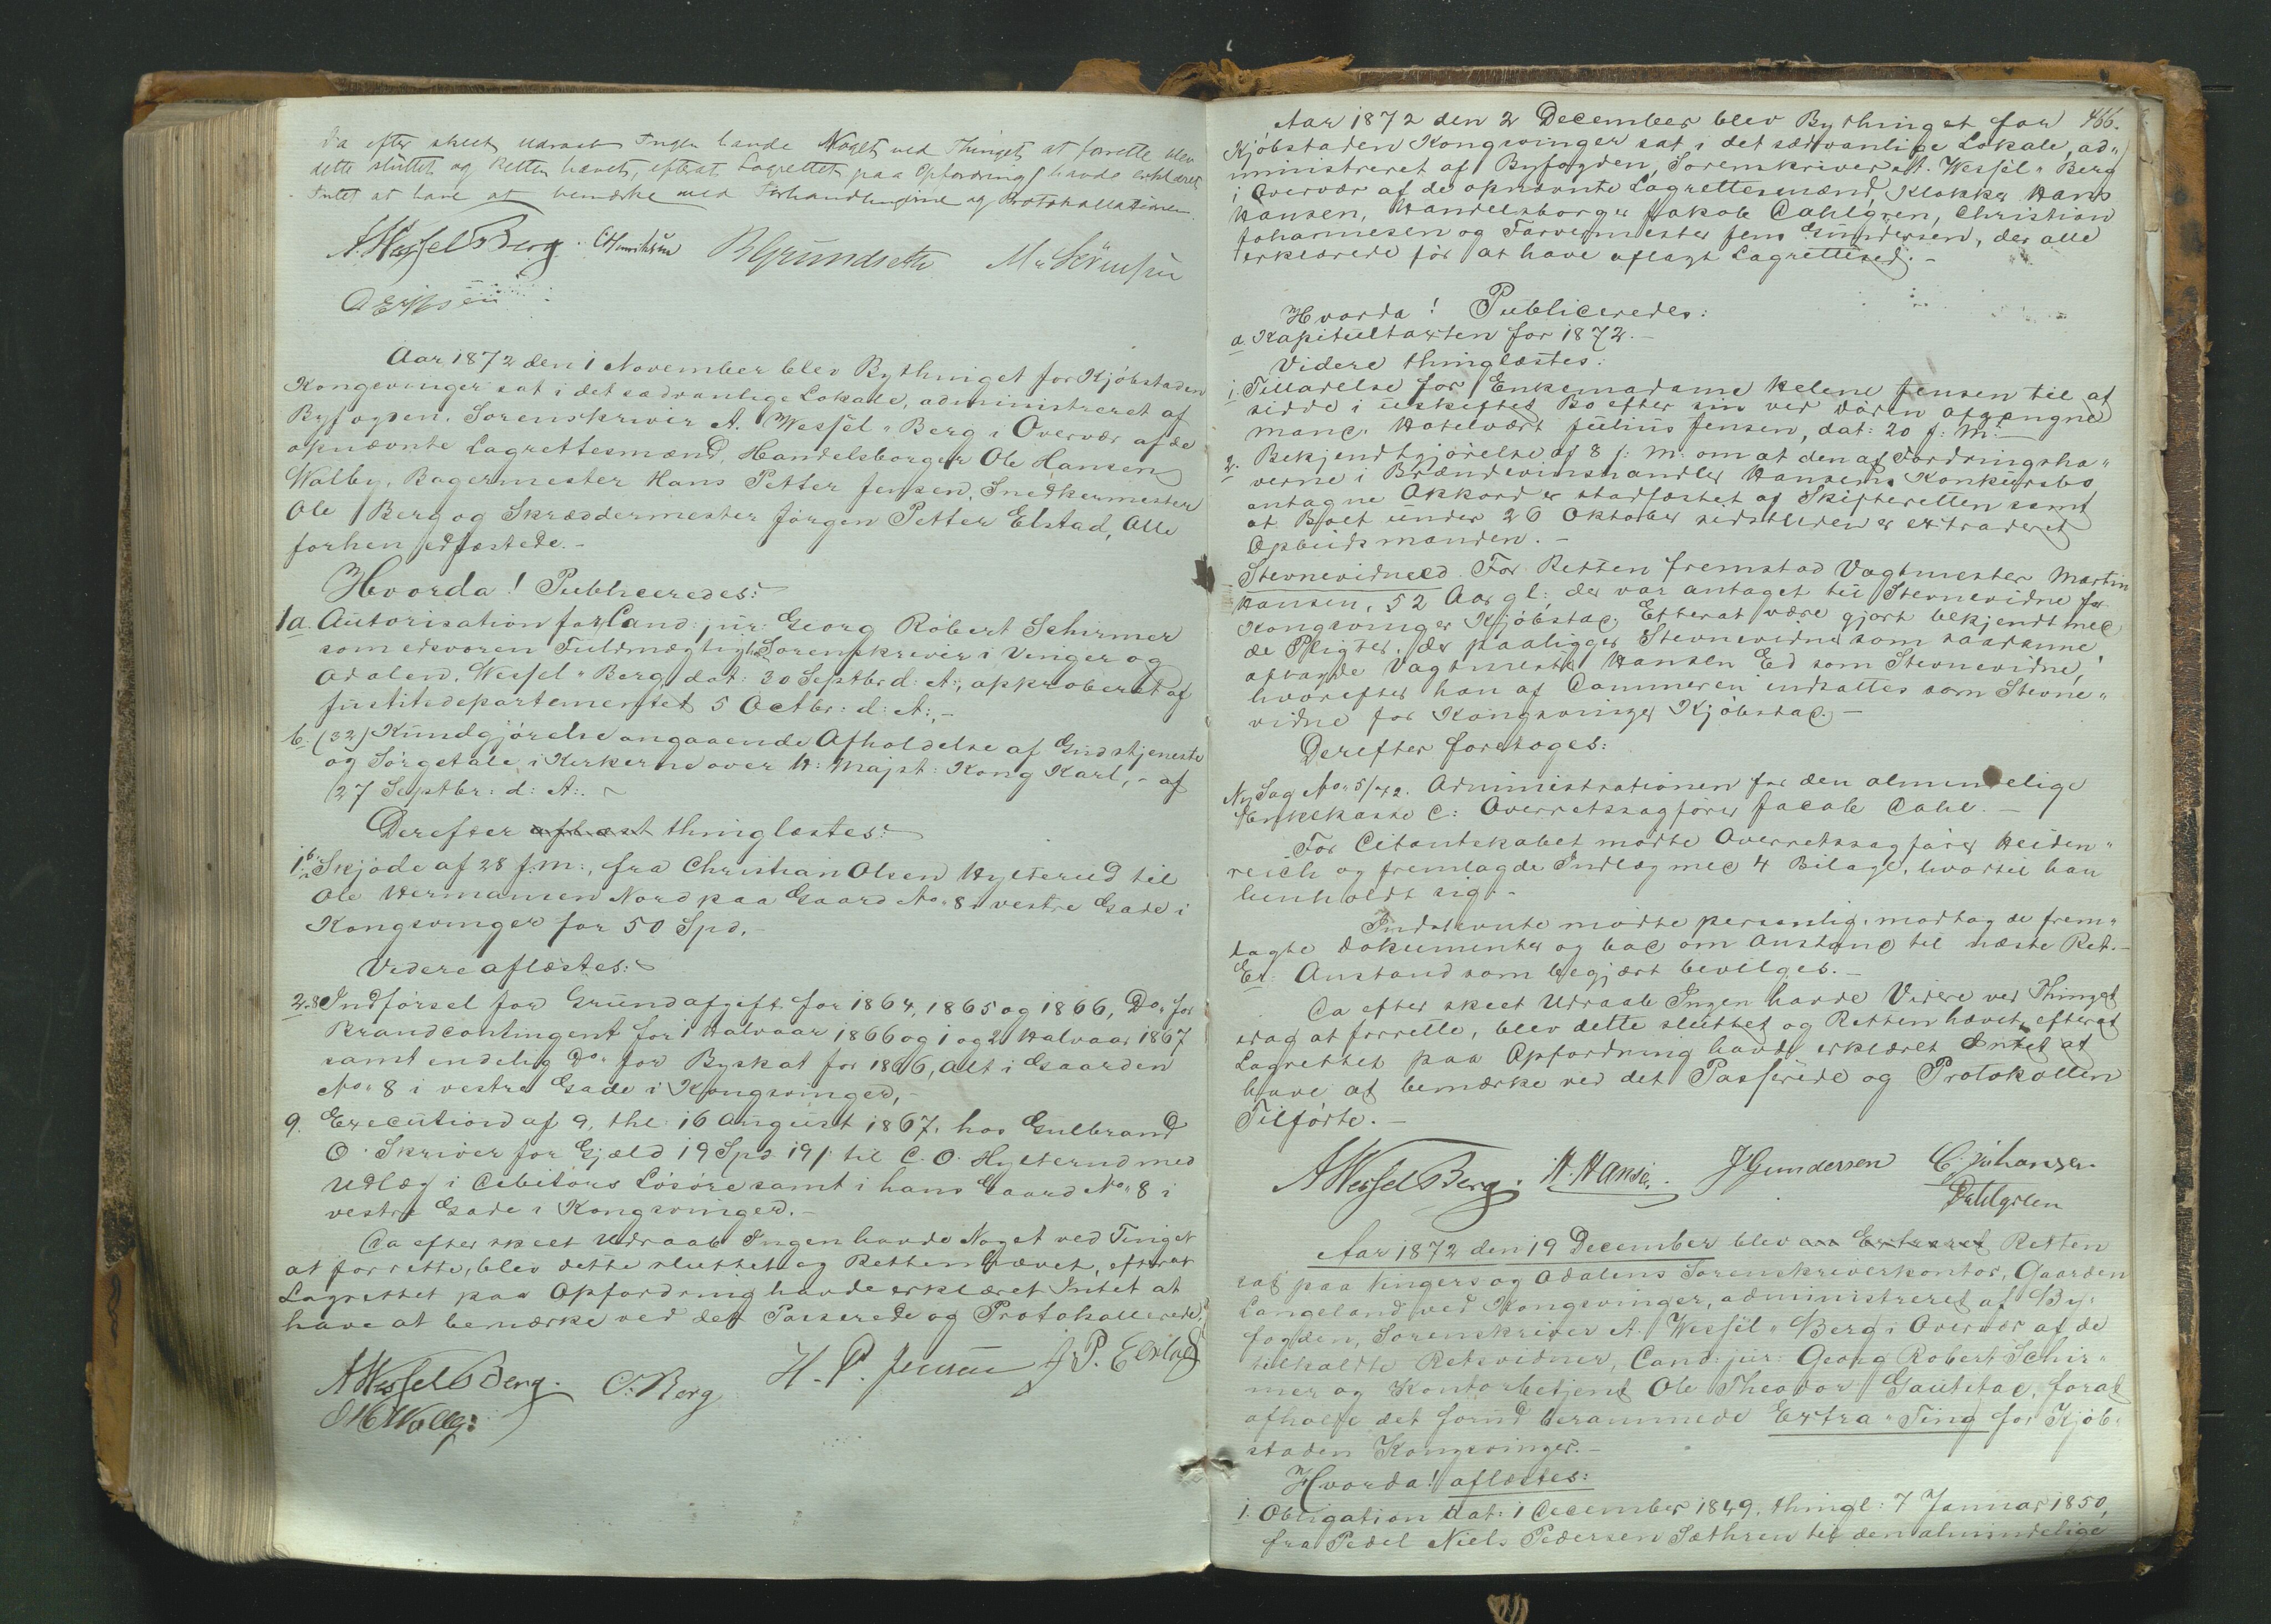 Da efter skeet Udraab Ingen havde Noget ved Thinget at forrette blev
dette sluttet og Retten hævet, efterat Lagrettet paa Opfordring havde erklæret
Intet at have at bemærke med Forhandlingerne og Protokollationen.
A Wessel Berg. C Henriksen B Grundseth M. Sörensen
A Eriksen
Aar 1872 den 1 November blev Bythinget for Kjöbstaden
Kongsvinger sat i det sædvanlige Lokale, administreret af
Byfogden, Sorenskriver A. Wessel-Berg i Overvær af de
opnævnte Lagrettesmænd, Handelsborger Ole Hansen
Walby, Bagermester Hans Petter Jensen, Snedkermester
Ole Berg og Skræddermester Jörgen Petter Elstad, Alle
forhen edfæstede.-
Hvorda! Publiceredes:
1 a. Autorisation for Cand: jur: Georg Robert Schirmer
som edsvoren Fuldmægtig hos Sorenskriver i Vinger og
Odalen, Wessel-Berg dat: 30 Septbr d: A:, approberet af
Justitsdepartementet 5 Octbr: d: A:,-
b. (32) Kundgjörelse angaaende Afholdelse af Gudstjeneste
og Sörgetale i Kirkerne over H: Majst: Kong Karl,- af
27 Septbr: d: A:.
Derefter aflæst thinglæstes:
1. Skjöde af 28 f: M:, fra Christian Olsen Hylterud til
Ole Hermansen Nord paa Gaard No. 8 i vestre Gade i
Kongsvinger for 50 Spd.-
Videre aflæstes:
2. 8 Indförsel for Grundafgift for 1864, 1865 og 1866, Do. for
Brandcontingent for 1 Halvaar 1866 og 1 og 2 Halvaar 1867
samt endelig Do. for Byskat for 1866, Alt i Gaarden
No. 8 i vestre Gade i Kongsvinger,-
9. Execution af 9, thl: 16 August 1867, hos Gulbrand
O. Skriver for Gjæld 19 Spd 19 / til C. O. Hylterud med
Udlæg i Debitors Lösöre samt i hans Gaard No. 8 i
vestre Gade i Kongsvinger.-
Da efter skeet Udraab Ingen havde Noget ved Tinget
at forrette, blev dette sluttet og Retten hævet, efterat
Lagrettet paa Opfordring havde erklæret Intet at
have at bemærke ved det Passerede og Protokollerede.
A Wessel Berg. O. Berg H. P. Jensen J. P. Elstad
O H Walby
466.
Aar 1872 den 2 December blev Bythinget for
Kjöbstaden Kongsvinger sat i det sædvanlige Lokale, ad-
ministreret af Byfogden, Sorenskriver A. Wessel-Berg
i Overvær af de opnævnte Lagrettesmænd, Klokker Hans
Hansen, Handelsborger Jakob Dahlgren, Christian
Johannesen og Farvermester Jens Gundersen, der alle
erklærede för at have aflagt Lagrettesed.-
Hvorda! Publiceredes:
a Kapitultaxten for 1872.-
Videre thinglæstes:
1. Tilladelse for Enkemadame Helene Jensen til at
sidde i uskiftet Bo efter sin ved Döden afgangne
Mand, Hotelvært Julius Jensen, dat: 20 f: M:-
2. Bekjendtgjörelse af 8 f: M: om at den af Fordringsha-
verne i Brændevinshandler Hansens Konkursbo
antagne Akkord er stadfæstet af Skifteretten samt
at Boet under 26 Oktober sidstleden er extraderet
Opbudsmanden.-
Stevnevidneed. For Retten fremstod Vagtmester Martin
Hansen, 52 Aar gl:, der var antaget til Stevnevidne for
Kongsvinger Kjöbstad. Efterat være gjort bekjendt med
de Pligter, der paaligger Stevnevidner som saadanne
aflagde Vagtmester Hansen Ed som Stevnevidne,
hvorefter han af Dommeren indsattes som Stevne-
vidne for Kongsvinger Kjöbstad.-
Derefter foretoges:
Ny Sag No. 5/72. Administrationen for den almindelige
Enkekasse C: Overretssagförer Jacob Dahl.-
For Citantskabet mödte Overretssagförer Heiden-
reich og fremlagde Indlæg med 4 Bilage, hvortil han
henholdt sig.-
Indstevnte mödte personlig, modtog de frem-
lagte Dokumenter og bad om Anstand til næste Ret.-
Er. Anstand som begjært bevilges.-
Da efter skeet Udraab Ingen havde Videre ved Thinget
idag at forrette, blev dette sluttet og Retten hævet, efterat
Lagrettet paa Opfordring havde erklæret Intet at
have at bemærke ved det Passerede og Protokollen
Tilförte.-
A Wessel Berg. H. Hansen. J Gundersen C. Johansen
Dahlgren
Aar 1872 den 19 December blev en Extraret Retten
sat paa Vingers og Odalens Sorenskriverkontor, Gaarden
Langeland ved Kongsvinger, administreret af By-
fogden, Sorenskriver A. Wessel-Berg i Overvær af de
tilkaldte Retsvidner, Cand: jur: Georg Robert Schir-
mer og Kontorbetjent Ole Theodor Gautstad, forat
afholde det forud berammede Extra-Ting for Kjöb-
staden Kongsvinger.-
Hvorda! aflæstes:
1. Obligation dat: 1 December 1849, thingl: 7 Januar 1850,
fra Pedel Niels Pedersen Sæthren til den almindelige